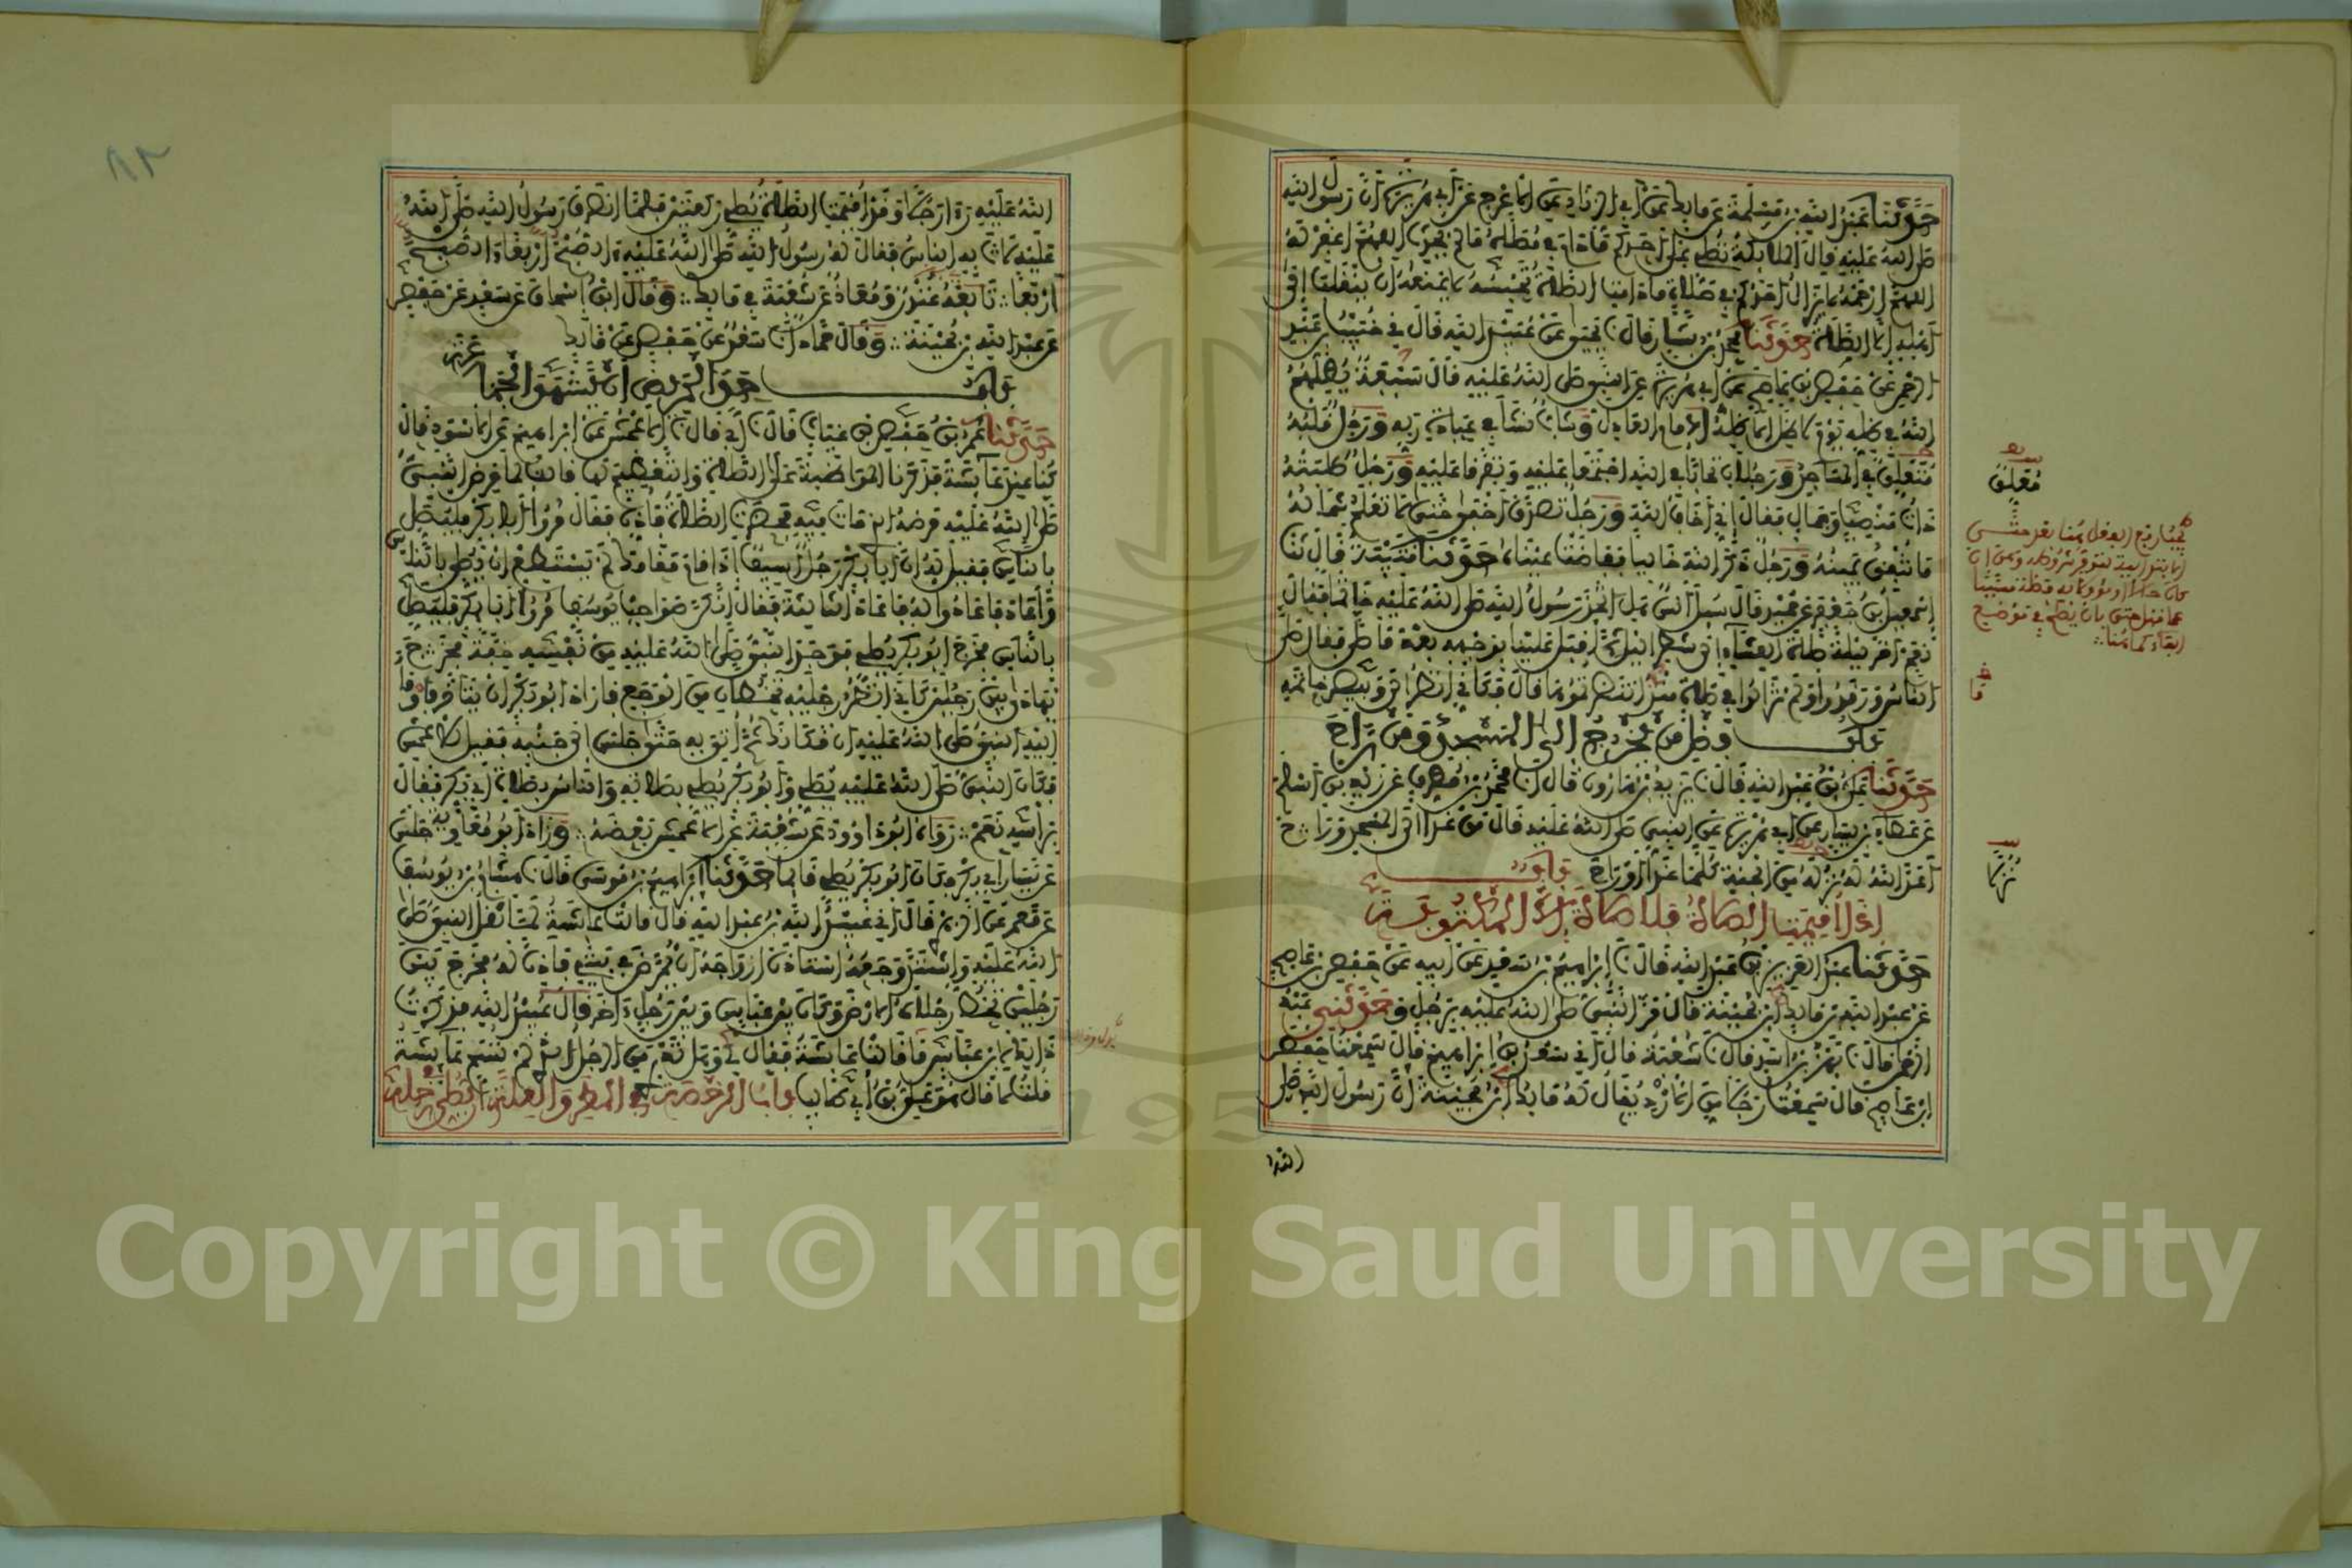 حَدَّثَنَا عَبْدُ اللهِ بْنُ مَسْلَمَةَ عَنْ مَالِكٍ عَنْ أَبِي الزِّنَادِ عَنِ الأَعْرَجِ عَنْ أَبِي هُرَيْرَةَ أَنَّ رَسُولَ اللهِ
صَلَّى اللهُ عَلَيْهِ قَالَ الْمَلَائِكَةُ تُصَلِّي عَلَى أَحَدِكُمْ مَا دَامَ فِي مُصَلَّاهُ مَا لَمْ يُحْدِثْ اللَّهُمَّ اغْفِرْ لَهُ
اللَّهُمَّ ارْحَمْهُ لَا يَزَالُ أَحَدُكُمْ فِي صَلَاةٍ مَا دَامَتِ الصَّلَاةُ تَحْبِسُهُ لَا يَمْنَعُهُ أَنْ يَنْقَلِبَ إِلَى
أَهْلِهِ إِلَّا الصَّلَاةُ حَدَّثَنَا مُحَمَّدُ بْنُ بَشَّارٍ قَالَ نَا يَحْيَى عَنْ عُبَيْدِ اللهِ قَالَ نِي خُبَيْبُ بْنُ عَبْدِ
الرَّحْمَنِ عَنْ حَفْصِ بْنِ عَاصِمٍ عَنْ أَبِي هُرَيْرَةَ عَنِ النَّبِيِّ صَلَّى اللهُ عَلَيْهِ قَالَ سَبْعَةٌ يُظِلُّهُمُ
اللهُ فِي ظِلِّهِ يَوْمَ لَا ظِلَّ إِلَّا ظِلُّهُ الْإِمَامُ الْعَادِلُ وَشَابٌّ نَشَأَ فِي عِبَادَةِ رَبِّهِ وَرَجُلٌ قَلْبُهُ
مُتَعَلِّقٌ فِي الْمَسَاجِدِ وَرَجُلَانِ تَحَابَّا فِي اللهِ اجْتَمَعَا عَلَيْهِ وَتَفَرَّقَا عَلَيْهِ وَرَجُلٌ طَلَبَتْهُ
ذَاتُ مَنْصِبٍ وَجَمَالٍ فَقَالَ إِنِّي أَخَافُ اللهَ وَرَجُلٌ تَصَدَّقَ أَخْفَى حَتَّى لَا تَعْلَمَ شِمَالُهُ
مَا تُنْفِقُ يَمِينُهُ وَرَجُلٌ ذَكَرَ اللهَ خَالِيًا فَفَاضَتْ عَيْنَاهُ حَدَّثَنَا قُتَيْبَةُ قَالَ نَا
إِسْمَعِيلُ بْنُ جَعْفَرٍ عَنْ حُمَيْدٍ قَالَ سُئِلَ أَنَسٌ هَلِ اتَّخَذَ رَسُولُ اللهِ صَلَّى اللهُ عَلَيْهِ خَاتَمًا فَقَالَ
نَعَمْ أَخَّرَ لَيْلَةً صَلَاةَ الْعِشَاءِ إِلَى شَطْرِ اللَّيْلِ ثُمَّ أَقْبَلَ عَلَيْنَا بِوَجْهِهِ بَعْدَ مَا صَلَّى فَقَالَ صَلَّى
النَّاسُ وَرَقَدُوا وَلَمْ تَزَالُوا فِي صَلَاةٍ مُنْذُ انْتَظَرْتُمُوهَا قَالَ فَكَأَنِّي أَنْظُرُ إِلَى وَبِيصِ خَاتَمِهِ
بَابُ فَضْلِ مَنْ يَخْرُجُ إِلَى الْمَسْجِدِ وَمَنْ رَاحَ
حَدَّثَنَا عَلِيُّ بْنُ عَبْدِ اللهِ قَالَ نَا يَزِيدُ بْنُ هَارُونَ قَالَ أَنَا مُحَمَّدُ بْنُ مُطَرِّفٍ عَنْ زَيْدِ بْنِ أَسْلَمَ
عَنْ عَطَاءِ بْنِ يَسَارٍ عَنْ أَبِي هُرَيْرَةَ عَنِ النَّبِيِّ صَلَّى اللهُ عَلَيْهِ قَالَ مَنْ غَدَا إِلَى الْمَسْجِدِ وَرَاحَ
أَعَدَّ اللهُ لَهُ نُزُلَهُ مِنَ الْجَنَّةِ كُلَّمَا غَدَا أَوْ رَاحَ بَابٌ
إِذَا أُقِيمَتِ الصَّلَاةُ فَلَا صَلَاةَ إِلَّا الْمَكْتُوبَةَ
حَدَّثَنَا عَبْدُ الْعَزِيزِ بْنُ عَبْدِ اللهِ قَالَ نَا إِبْرَاهِيمُ بْنُ سَعْدٍ عَنْ أَبِيهِ عَنْ حَفْصِ بْنِ عَاصِمٍ
عَنْ عَبْدِ اللهِ بْنِ مَالِكٍ ابْنِ بُحَيْنَةَ قَالَ مَرَّ النَّبِيُّ صَلَّى اللهُ عَلَيْهِ بِرَجُلٍ وَحَدَّثَنِي عَبْدُ
الرَّحْمَنِ قَالَ نَا بَهْزُ بْنُ أَسَدٍ قَالَ نَا شُعْبَةُ قَالَ أَنِي سَعْدُ بْنُ إِبْرَاهِيمَ قَالَ سَمِعْتُ حَفْصَ
ابْنَ عَاصِمٍ قَالَ سَمِعْتُ رَجُلًا مِنَ الْأَزْدِ يُقَالُ لَهُ مَالِكُ ابْنُ بُحَيْنَةَ أَنَّ رَسُولَ اللهِ صَلَّى
مُعَلَّقٌ
نُزُلًا
اللهُ عَلَيْهِ رَأَى رَجُلًا وَقَدْ أُقِيمَتِ الصَّلَاةُ يُصَلِّي رَكْعَتَيْنِ فَلَمَّا انْصَرَفَ رَسُولُ اللهِ صَلَّى اللهُ
عَلَيْهِ لَاثَ بِهِ النَّاسُ فَقَالَ لَهُ رَسُولُ اللهِ صَلَّى اللهُ عَلَيْهِ الصُّبْحَ أَرْبَعًا الصُّبْحَ
أَرْبَعًا تَابَعَهُ غُنْدَرٌ وَمُعَاذٌ عَنْ شُعْبَةَ فِي مَالِكٍ وَقَالَ ابْنُ إِسْحَاقَ عَنْ سَعْدٍ عَنْ حَفْصٍ
عَنْ عَبْدِ اللهِ بْنِ بُحَيْنَةَ وَقَالَ حَمَّادٌ أَنَا سَعْدٌ عَنْ حَفْصٍ عَنْ مَالِكٍ
بَابُ حَدِّ الْمَرِيضِ أَنْ يَشْهَدَ الْجَمَاعَةَ
حَدَّثَنَا عُمَرُ بْنُ حَفْصِ بْنِ غِيَاثٍ قَالَ نَا أَبِي قَالَ نَا الْأَعْمَشُ عَنْ إِبْرَاهِيمَ عَنِ الْأَسْوَدِ قَالَ
كُنَّا عِنْدَ عَائِشَةَ فَذَكَرْنَا الْمُوَاظَبَةَ عَلَى الصَّلَاةِ وَالتَّعْظِيمَ لَهَا قَالَتْ لَمَّا مَرِضَ النَّبِيُّ
صَلَّى اللهُ عَلَيْهِ مَرَضَهُ الَّذِي مَاتَ فِيهِ فَحَضَرَتِ الصَّلَاةُ فَأُذِّنَ فَقَالَ مُرُوا أَبَا بَكْرٍ فَلْيُصَلِّ
بِالنَّاسِ فَقِيلَ لَهُ إِنَّ أَبَا بَكْرٍ رَجُلٌ أَسِيفٌ إِذَا قَامَ مَقَامَكَ لَمْ يَسْتَطِعْ أَنْ يُصَلِّيَ بِالنَّاسِ
وَأَعَادَ فَأَعَادُوا لَهُ فَأَعَادَ الثَّالِثَةَ فَقَالَ إِنَّكُنَّ صَوَاحِبُ يُوسُفَ مُرُوا أَبَا بَكْرٍ فَلْيُصَلِّ
بِالنَّاسِ فَخَرَجَ أَبُو بَكْرٍ يُصَلِّي فَوَجَدَ النَّبِيُّ صَلَّى اللهُ عَلَيْهِ مِنْ نَفْسِهِ خِفَّةً فَخَرَجَ
يُهَادَى بَيْنَ رَجُلَيْنِ كَأَنِّي أَنْظُرُ رِجْلَيْهِ تَخُطَّانِ مِنَ الْوَجَعِ فَأَرَادَ أَبُو بَكْرٍ أَنْ يَتَأَخَّرَ فَأَوْمَأَ
إِلَيْهِ النَّبِيُّ صَلَّى اللهُ عَلَيْهِ أَنْ مَكَانَكَ ثُمَّ أُتِيَ بِهِ حَتَّى جَلَسَ إِلَى جَنْبِهِ فَقِيلَ لِلْأَعْمَشِ
فَكَانَ النَّبِيُّ صَلَّى اللهُ عَلَيْهِ يُصَلِّي وَأَبُو بَكْرٍ يُصَلِّي بِصَلَاتِهِ وَالنَّاسُ بِصَلَاةِ أَبِي بَكْرٍ فَقَالَ
بِرَأْسِهِ نَعَمْ رَوَاهُ أَبُو دَاوُودَ عَنْ شُعْبَةَ عَنِ الْأَعْمَشِ بَعْضَهُ وَزَادَ أَبُو مُعَاوِيَةَ جَلَسَ
عَنْ يَسَارِ أَبِي بَكْرٍ فَكَانَ أَبُو بَكْرٍ يُصَلِّي قَائِمًا حَدَّثَنَا إِبْرَاهِيمُ بْنُ مُوسَى قَالَ نَا هِشَامُ بْنُ يُوسُفَ
عَنْ مَعْمَرٍ عَنِ الزُّهْرِيِّ قَالَ أَنِي عُبَيْدُ اللهِ بْنُ عَبْدِ اللهِ قَالَ قَالَتْ عَائِشَةُ لَمَّا ثَقُلَ النَّبِيُّ صَلَّى
اللهُ عَلَيْهِ وَاشْتَدَّ وَجَعُهُ اسْتَأْذَنَ أَزْوَاجَهُ أَنْ يُمَرَّضَ فِي بَيْتِي فَأَذِنَّ لَهُ فَخَرَجَ بَيْنَ
رَجُلَيْنِ تَخُطُّ رِجْلَاهُ الْأَرْضَ وَكَانَ بَيْنَ عَبَّاسٍ وَبَيْنَ رَجُلٍ آخَرَ قَالَ عُبَيْدُ اللهِ فَذَكَرْتُ
ذَلِكَ لِابْنِ عَبَّاسٍ مَا قَالَتْ عَائِشَةُ فَقَالَ لِي وَهَلْ تَدْرِي مَنِ الرَّجُلُ الَّذِي لَمْ تُسَمِّ عَائِشَةُ
قُلْتُ لَا قَالَ هُوَ عَلِيُّ بْنُ أَبِي طَالِبٍ بَابُ الرُّخْصَةِ فِي الْمَطَرِ وَالْعِلَّةِ أَنْ يُصَلِّيَ فِي رَحْلِهِ
٨٢
Copyright © King Saud University
1957